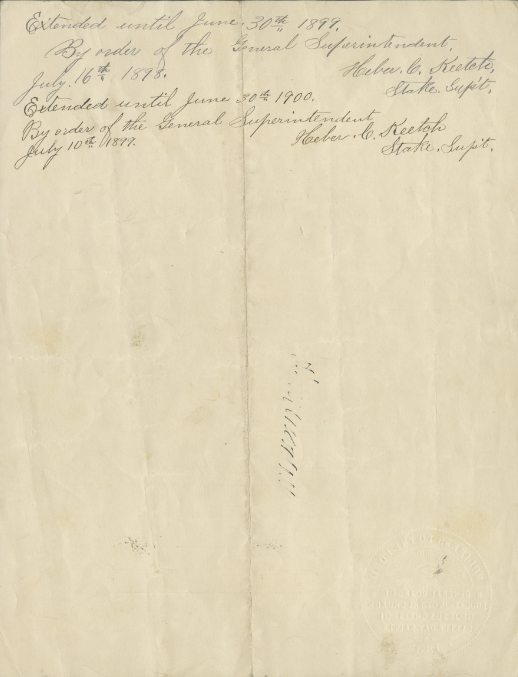 Extended until June 30th 1899.
By order of the General Superintendent.
July 16th 1898. Heber. C. Keetch,
Stake. Supt.
Extended until June 30th 1900.
By order of the General Superintendent
July 10th 1899. Heber. C. Keetch
Stake. Supt.